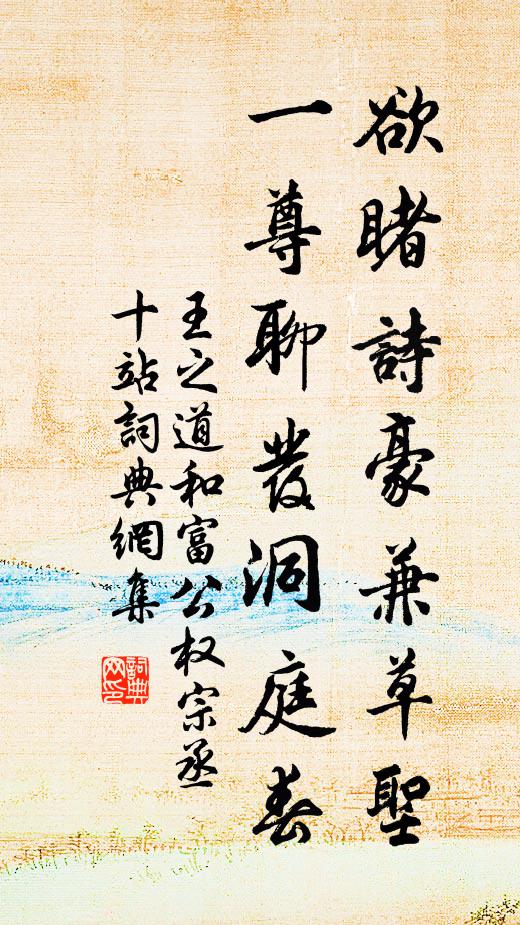 欲睹詩豪兼草聖
一尊聊發洞庭春
王之道和富公权宗丞
十站詞典網集
詞典网印